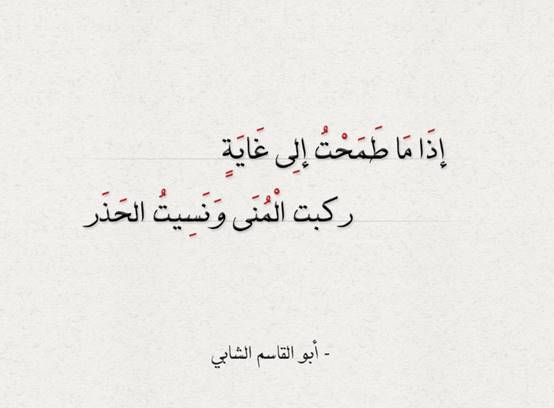 إِذَا مَا طَمَحْتُ إِلى غَايَةٍ
ركبت الْمُنَى وَنَسِيتُ الحَذَر
- أبو القاسم الشابي